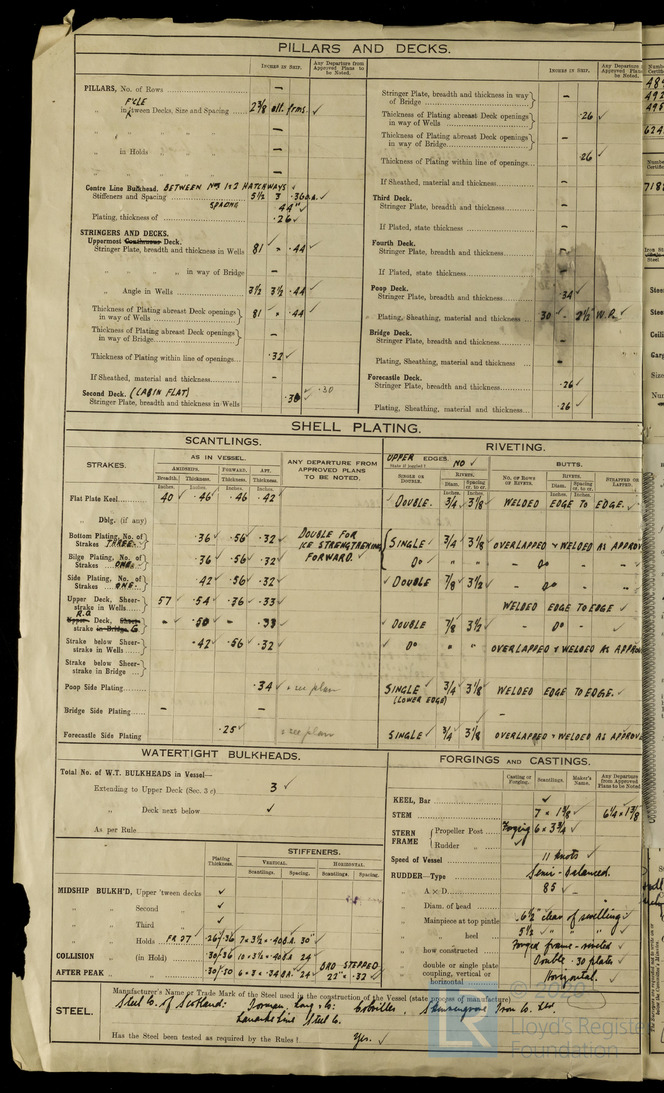 PILLARS AND DECKS.
INCHES IN SHIP. Any Departure from Approved Plans to be Noted.
PILLARS, No. of Rows — 
„ in 'tween Decks, Size and Spacing 2 3/8 alt. frms. ✓
„ „ „ —
„ in Holds —
„ „ —
Centre Line Bulkhead. BETWEEN Nos 1 & 2 HATCHWAYS.
Stiffeners and Spacing 5 1/2 3 .36 B.A. ✓
SPACING 44" ✓
Plating, thickness of .26 ✓
STRINGERS AND DECKS.
Uppermost Continuous Deck.
Stringer Plate, breadth and thickness in Wells 81 × .44 ✓
„ „ „ „ in way of Bridge —
„ Angle in Wells 3 1/2 3 1/2 .44 ✓
Thickness of Plating abreast Deck openings in way of Wells 81 × .44 ✓
Thickness of Plating abreast Deck openings in way of Bridge —
Thickness of Plating within line of openings .32 ✓
If Sheathed, material and thickness —
Second Deck. (CABIN FLAT)
Stringer Plate, breadth and thickness in Wells .30 ✓ .30
INCHES IN SHIP. Any Departure from Approved Plans to be Noted.
Stringer Plate, breadth and thickness in way of Bridge —
Thickness of Plating abreast Deck openings in way of Wells .26 ✓
Thickness of Plating abreast Deck openings in way of Bridge —
Thickness of Plating within line of openings .26 ✓
If Sheathed, material and thickness —
Third Deck.
Stringer Plate, breadth and thickness —
If Plated, state thickness —
Fourth Deck.
Stringer Plate, breadth and thickness —
If Plated, state thickness —
Poop Deck.
Stringer Plate, breadth and thickness .34 ✓
Plating, Sheathing, material and thickness .30 - 2 1/2" W.P. ✓
Bridge Deck.
Stringer Plate, breadth and thickness —
Plating, Sheathing, material and thickness —
Forecastle Deck.
Stringer Plate, breadth and thickness .26 ✓
Plating, Sheathing, material and thickness .26 ✓
SHELL PLATING.
SCANTLINGS. RIVETING.
STRAKES. AS IN VESSEL. ANY DEPARTURE FROM APPROVED PLANS TO BE NOTED. UPPER EDGES. NO ✓ BUTTS.
State if joggled?
AMIDSHIPS. FORWARD. AFT. SINGLE OR DOUBLE. RIVETS. NO. OF ROWS OF RIVETS. RIVETS. STRAPPED OR LAPPED.
Breadth. Thickness. Thickness. Thickness. Diam. Spacing cr. to cr. Diam. Spacing cr. to cr.
Inches. Inches. Inches. Inches. Inches. Inches. Inches. Inches.
Flat Plate Keel 40 ✓ .46 ✓ .46 ✓ .42 ✓ ✓ DOUBLE. 3/4 ✓ 3 1/8 ✓ WELDED EDGE TO EDGE. ✓
„ Dblg. (if any)
Bottom Plating, No. of Strakes THREE .36 ✓ .56 ✓ .32 ✓ DOUBLE FOR ICE STRENGTHENING FORWARD. ✓ SINGLE ✓ 3/4 ✓ 3 1/8 ✓ OVERLAPPED & WELDED AS APPROV
Bilge Plating, No. of Strakes ONE. .36 ✓ .56 ✓ .32 ✓ Do ✓ „ „ — Do —
Side Plating, No. of Strakes ONE. .42 ✓ .56 ✓ .32 ✓ ✓ DOUBLE 7/8 ✓ 3 1/2 ✓ — Do —
Upper Deck, Sheerstrake in Wells 57 ✓ .54 ✓ .36 ✓ .33 ✓ WELDED EDGE TO EDGE ✓
R.Q. Upper Deck, Sheerstrake in Bridge — .50 ✓ — .38 ✓ ✓ DOUBLE 7/8 ✓ 3 1/2 ✓ — Do — ✓
Strake below Sheerstrake in Wells .42 ✓ .56 ✓ .32 ✓ ✓ Do „ „ OVERLAPPED & WELDED AS APPROV
Strake below Sheerstrake in Bridge
Poop Side Plating .34 ✓ see plan SINGLE ✓ 3/4 ✓ 3 1/8 ✓ WELDED EDGE TO EDGE. ✓
(LOWER EDGE)
Bridge Side Plating — — —
Forecastle Side Plating .25 ✓ see plan SINGLE ✓ 3/4 ✓ 3 1/8 OVERLAPPED & WELDED AS APPROV
WATERTIGHT BULKHEADS.
Total No. of W.T. BULKHEADS in Vessel—
Extending to Upper Deck (Sec. 3 c) 3 ✓
„ Deck next below ✓
As per Rule
Plating Thickness. STIFFENERS.
VERTICAL. HORIZONTAL.
Scantlings. Spacing. Scantlings. Spacing.
MIDSHIP BULKH'D, Upper 'tween decks ✓
„ „ Second „ ✓
„ „ Third „ ✓
„ „ Holds FR 27 .26/.36 7 × 3 1/2 × .40 B.A. 30" ✓
COLLISION „ (in Hold) .30/.36 10 × 3 1/2 × .40 B.A. 24 ✓
AFTER PEAK „ „ .30/.50 6 × 3 × .34 B.A. 24 ✓ BHD STEPPED 22" × .32 ✓
FORGINGS AND CASTINGS.
Casting or Forging. Scantlings. Maker's Name. Any Departure from Approved Plans to be Noted
KEEL, Bar ✓
STEM 7 × 1 3/8 ✓ 6 1/4 × 1 3/8
STERN FRAME Propeller Post Forging 6 × 3 3/4 ✓
Rudder „ ✓
Speed of Vessel 11 knots ✓
RUDDER—Type Semi-balanced.
„ A × D 85 ✓
„ Diam. of head
„ Mainpiece at top pintle 6 1/2" clear of swelling ✓
„ „ heel 5 1/2 ✓ „ „ ✓
„ how constructed Forged frame - riveted ✓
„ double or single plate Double .30 plates ✓
coupling, vertical or horizontal Horizontal. ✓
STEEL.
Manufacturer's Name or Trade Mark of the Steel used in the construction of the Vessel (state process of manufacture)
Steel Co. of Scotland: Dorman, Long & Co: Colvilles, Skinningrove Iron Co. Ltd.
Lanarkshire Steel Co.
Has the Steel been tested as required by the Rules? Yes. ✓
© 2020
LR Lloyd's Register
Foundation